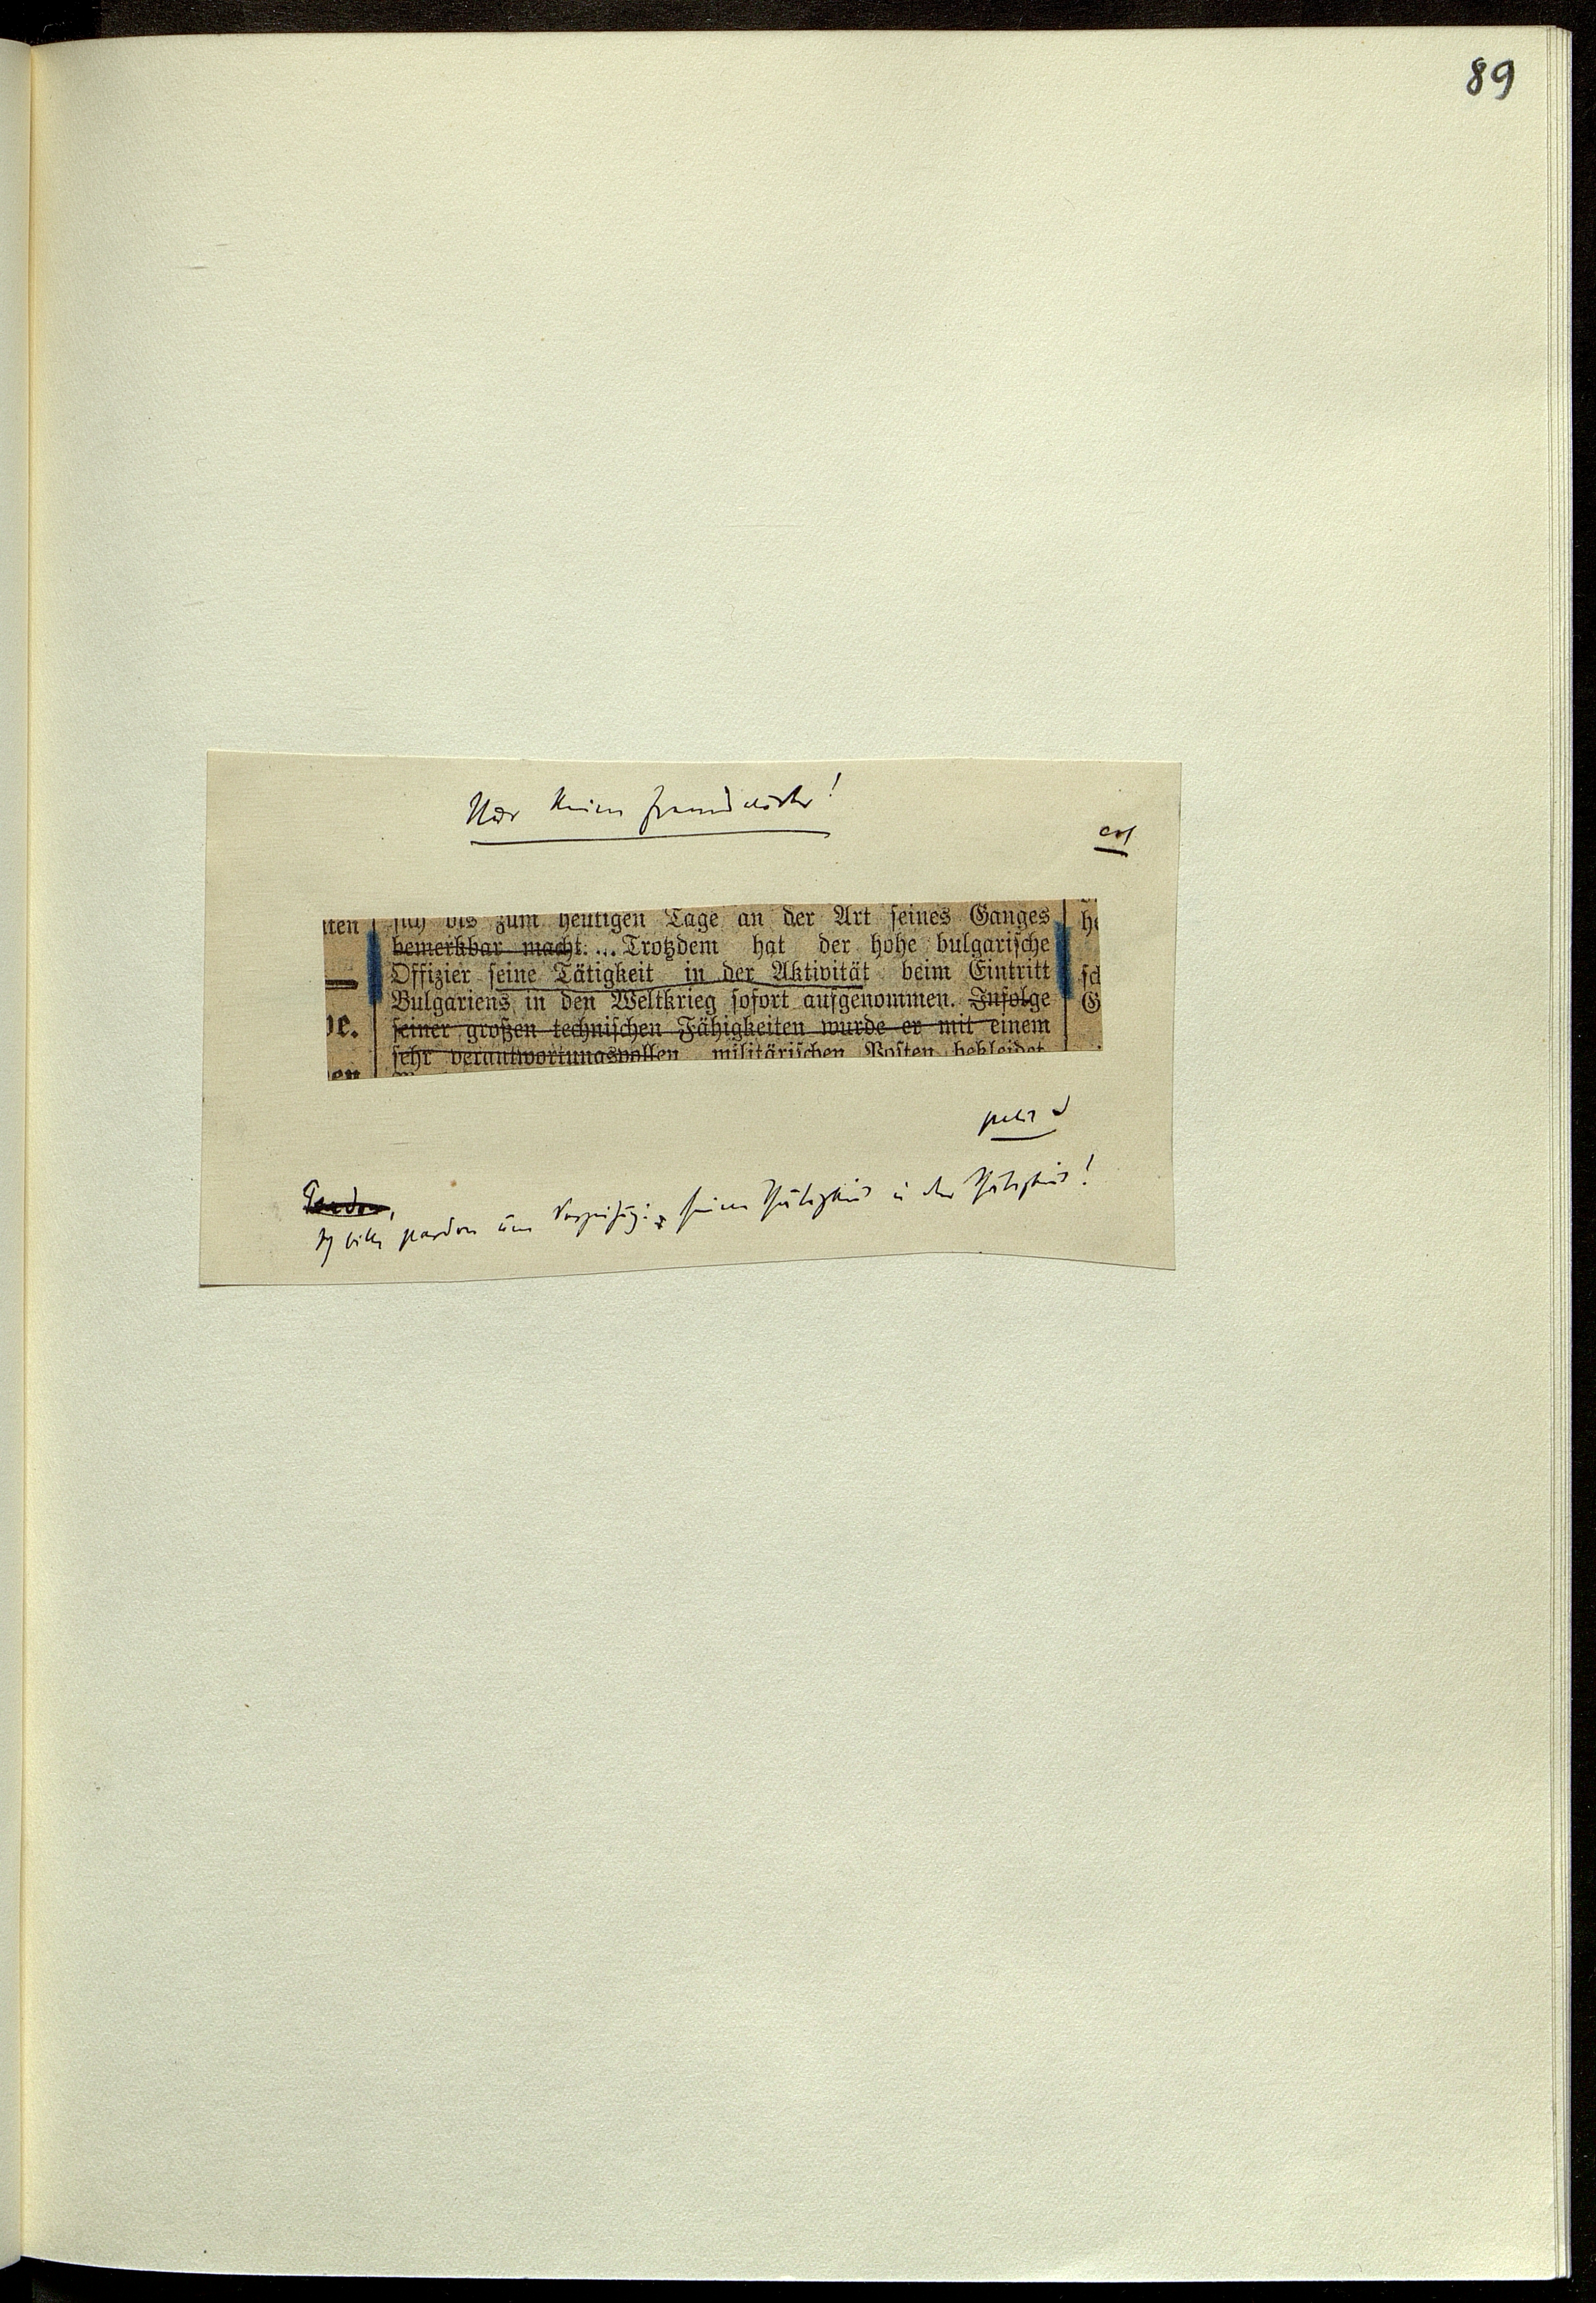 89
Nur keine Fremdwörter!
sich bis zum heutigen Tage an der Art seines Ganges
bemerkbar macht. ... Trotzdem hat der hohe bulgarische
Offizier seine Tätigkeit in der Aktivität beim Eintritt
Bulgariens in den Weltkrieg sofort aufgenommen. Infolge
seiner großen technischen Fähigkeiten wurde er mit einem
sehr verantwortungsvollen militärischen Posten bekleidet.
iten
he
sch
G
be.
en
petit
Pardon,
Ich bitte pardon um Verzeihung: seine Thätigkeit in der Thätigkeit!